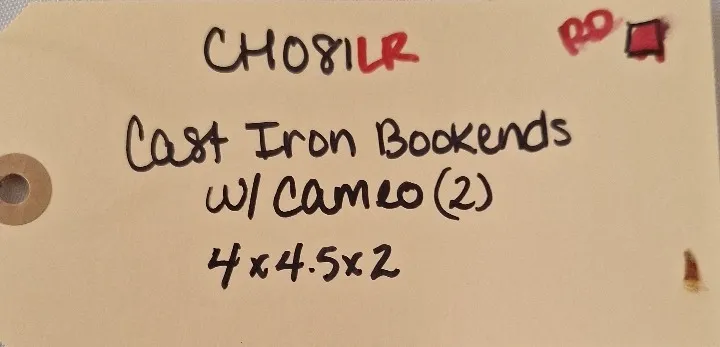 CH081LR
RD
Cast Iron Bookends
w/ Cameo (2)
4 x 4.5 x 2